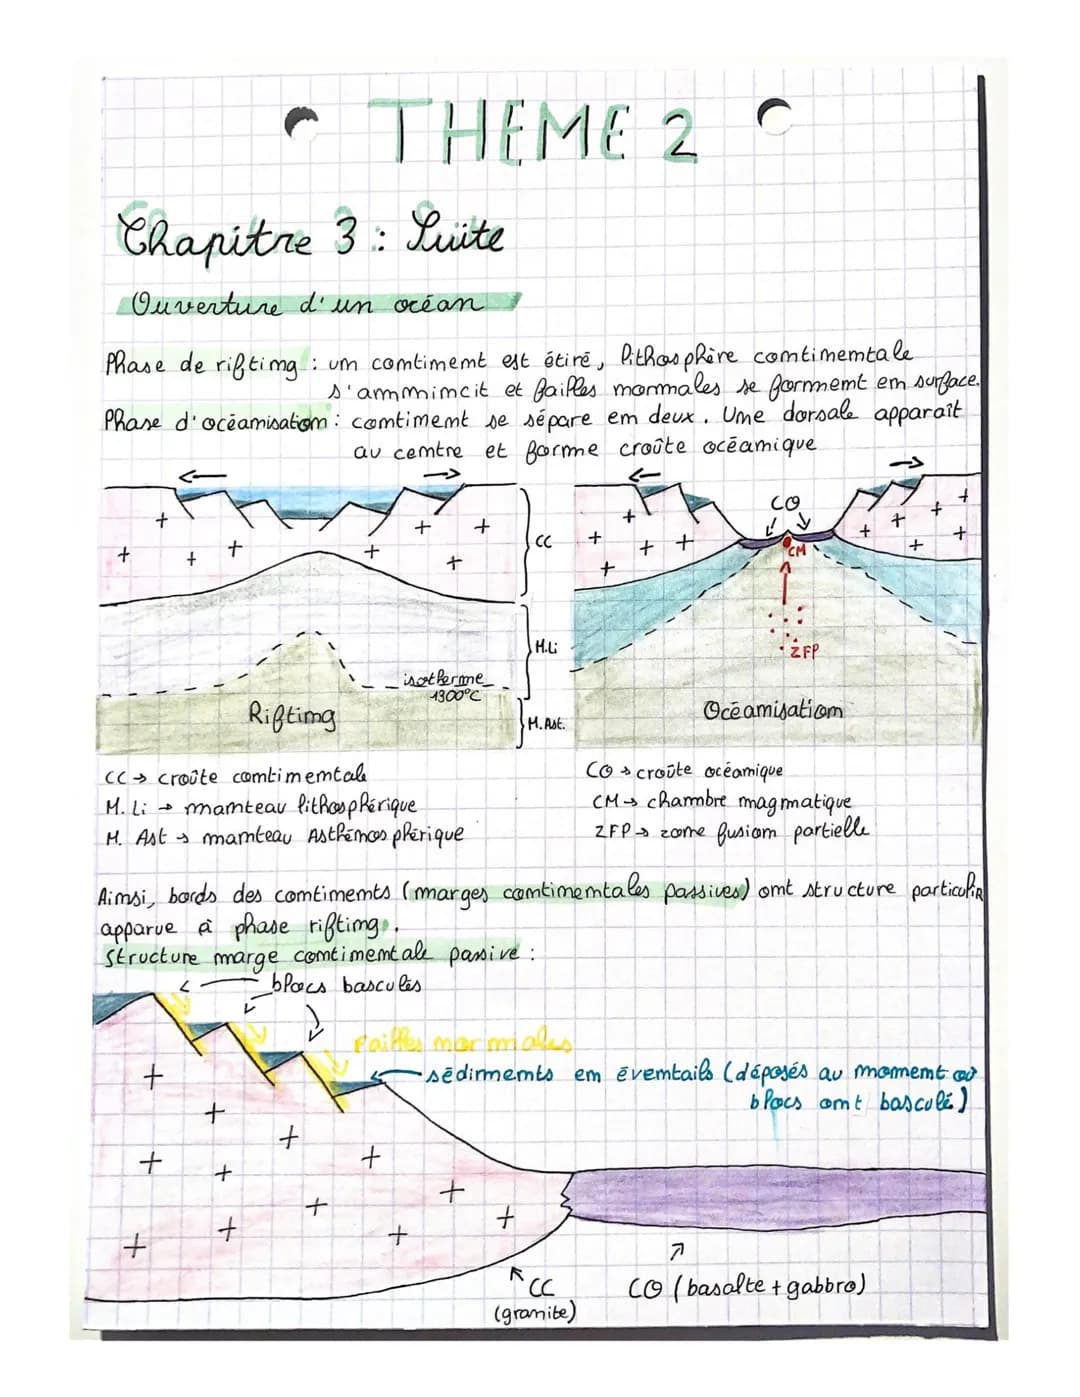 THEME 2
Chapitre 3 : Suite
Ouverture d'un océan
Phase de rifting : un continent est étiré, lithosphère continentale
s'ammincit et failles normales se forment en surface.
Phase d'océanisation : continent se sépare en deux. Une dorsale apparaît
au centre et forme croûte océanique
CC
M.Li
isotherme
1300°C
Rifting
M.Ast.
CO
CM
ZFP
Océanisation
CC → croûte continentale
M. Li → manteau lithosphérique
M. Ast → manteau Asthénosphérique
CO → croûte océanique
CM → chambre magmatique
ZFP → zone fusion partielle
Ainsi, bords des continents (marges continentales passives) ont structure particulière
apparue à phase rifting.
Structure marge continentale passive :
blocs basculés
Failles normales
sédiments en éventails (déposés au moment où
blocs ont basculé)
CC
(granite)
CO (basalte + gabbro)